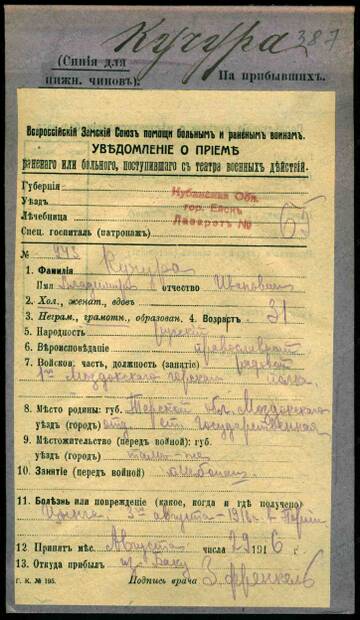 Кучура 387
(Синія для нижн. чиновъ.) На прибывшихъ.
Всероссійскій Земскій Союзъ помощи больнымъ и раненымъ воинамъ.
УВѢДОМЛЕНІЕ О ПРІЕМѢ
раненаго или больного, поступившаго съ театра военныхъ дѣйствій.
Губернія
Уѣздъ
Лѣчебница
Спец. госпиталь (патронажъ)
Кубанская Обл.
гор. Ейскъ
Лазаретъ № 65
№ 443
1. Фамилія Кучура
Имя Владимиръ отчество Ивановичъ
2. Хол., женат., вдовъ.
3. Неграм., грамотн., образован. 4. Возрастъ 31
5. Народность русскій
6. Вѣроисповѣданіе православный
7. Войсков. часть, должность (занятіе) рядовой
1го Моздокскаго горскаго полка.
8. Мѣсто родины: губ. Терской обл. Моздокскаго
уѣздъ (городъ) отд. ст. Государственная
9. Мѣстожительство (передъ войной): губ.
уѣздъ (городъ) тамъ-же
10. Занятіе (передъ войной) хлѣбопаш.
11. Болѣзнь или поврежденіе (какое, когда и гдѣ получено)
Цынга. 3го августа-1916г. в
12. Принятъ мѣс. Августа числа 29 1916 г.
13. Откуда прибылъ из Баку
Г. К. № 195. Подпись врача З. Френкель